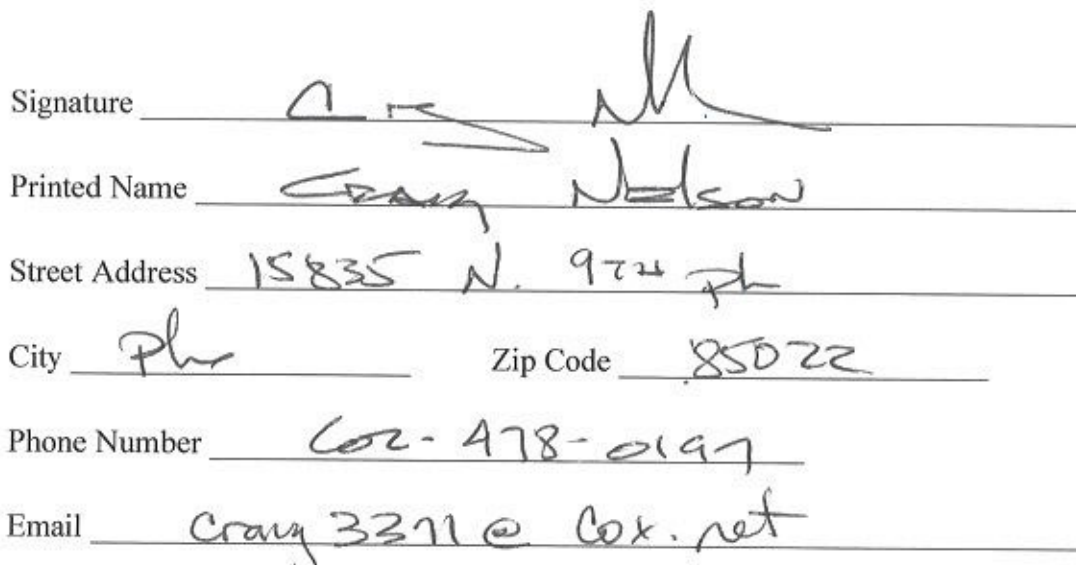 Signature
Printed Name Craig Nelson
Street Address 15835 N. 9TH Pl
City Phx Zip Code 85022
Phone Number 602-478-0197
Email Craig3371@cox.net